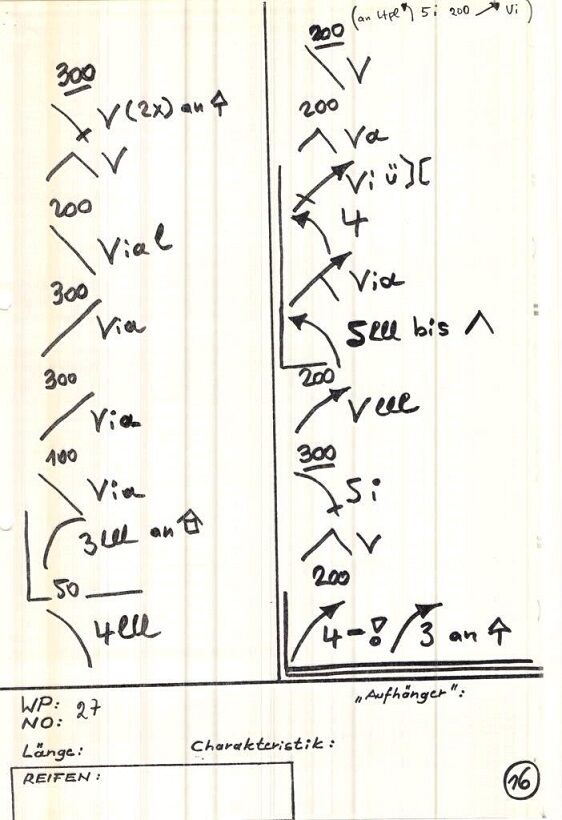 300
V (2x) an
V
200
Vial
300
Via
300
Via
100
Via
3lll an
50
4lll
5i 200 Vi)
200
V
200
Va
Vi ü
4
Via
5lll bis
200
Vlll
300
5i
V
200
4-! 3 an
WP: 27
NO:
Länge:
Charakteristik:
REIFEN:
„Aufhänger":
16